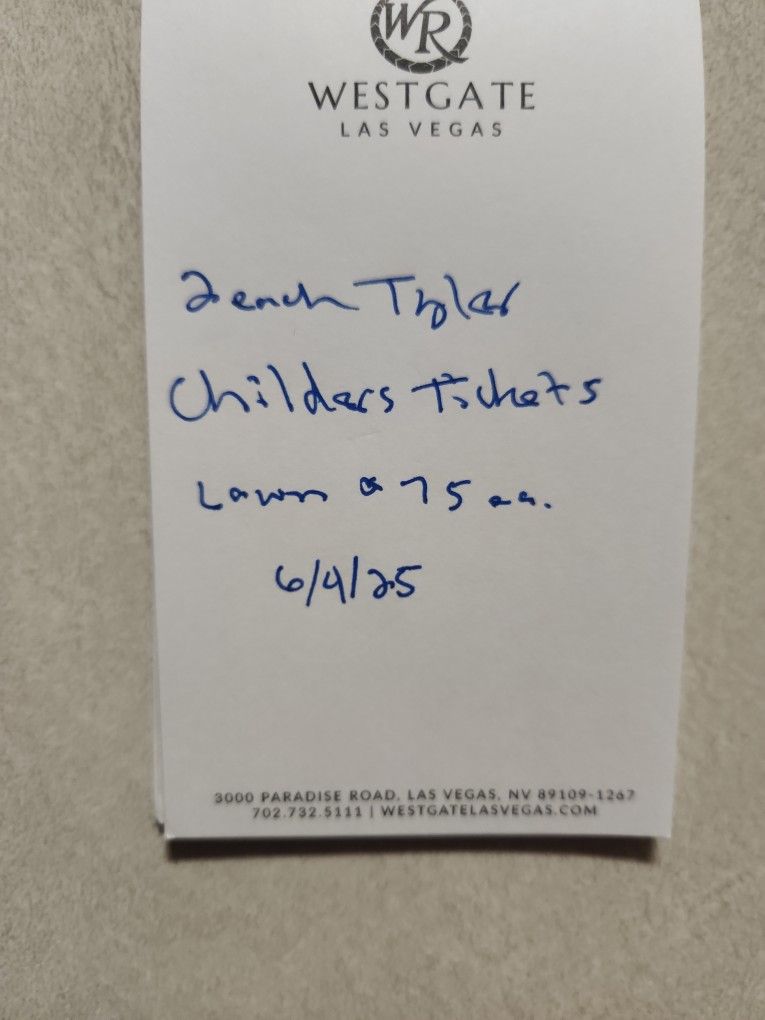 WR
WESTGATE
LAS VEGAS
2 each Tyler
Childers Tickets
Lawn @ 75 ea.
6/4/25
3000 PARADISE ROAD, LAS VEGAS, NV 89109-1267
702.732.5111 | WESTGATELASVEGAS.COM